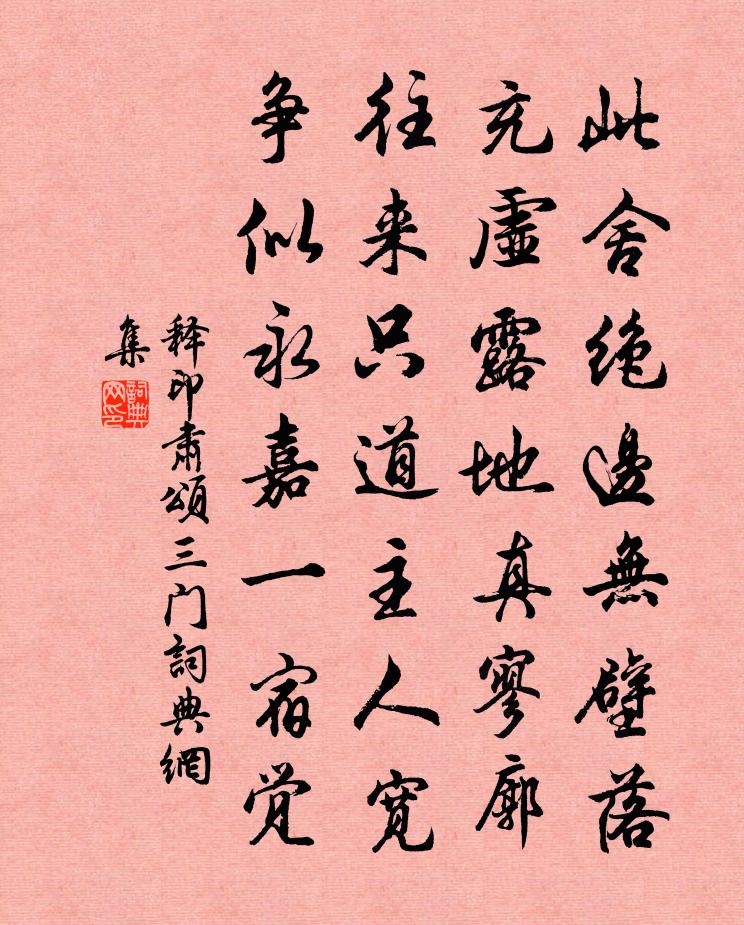 此舍绝邊無壁落
充虛露地真寥廓
往来只道主人寛
争似永嘉一宿觉
释印肃頌三门詞典網
集
詞典网印